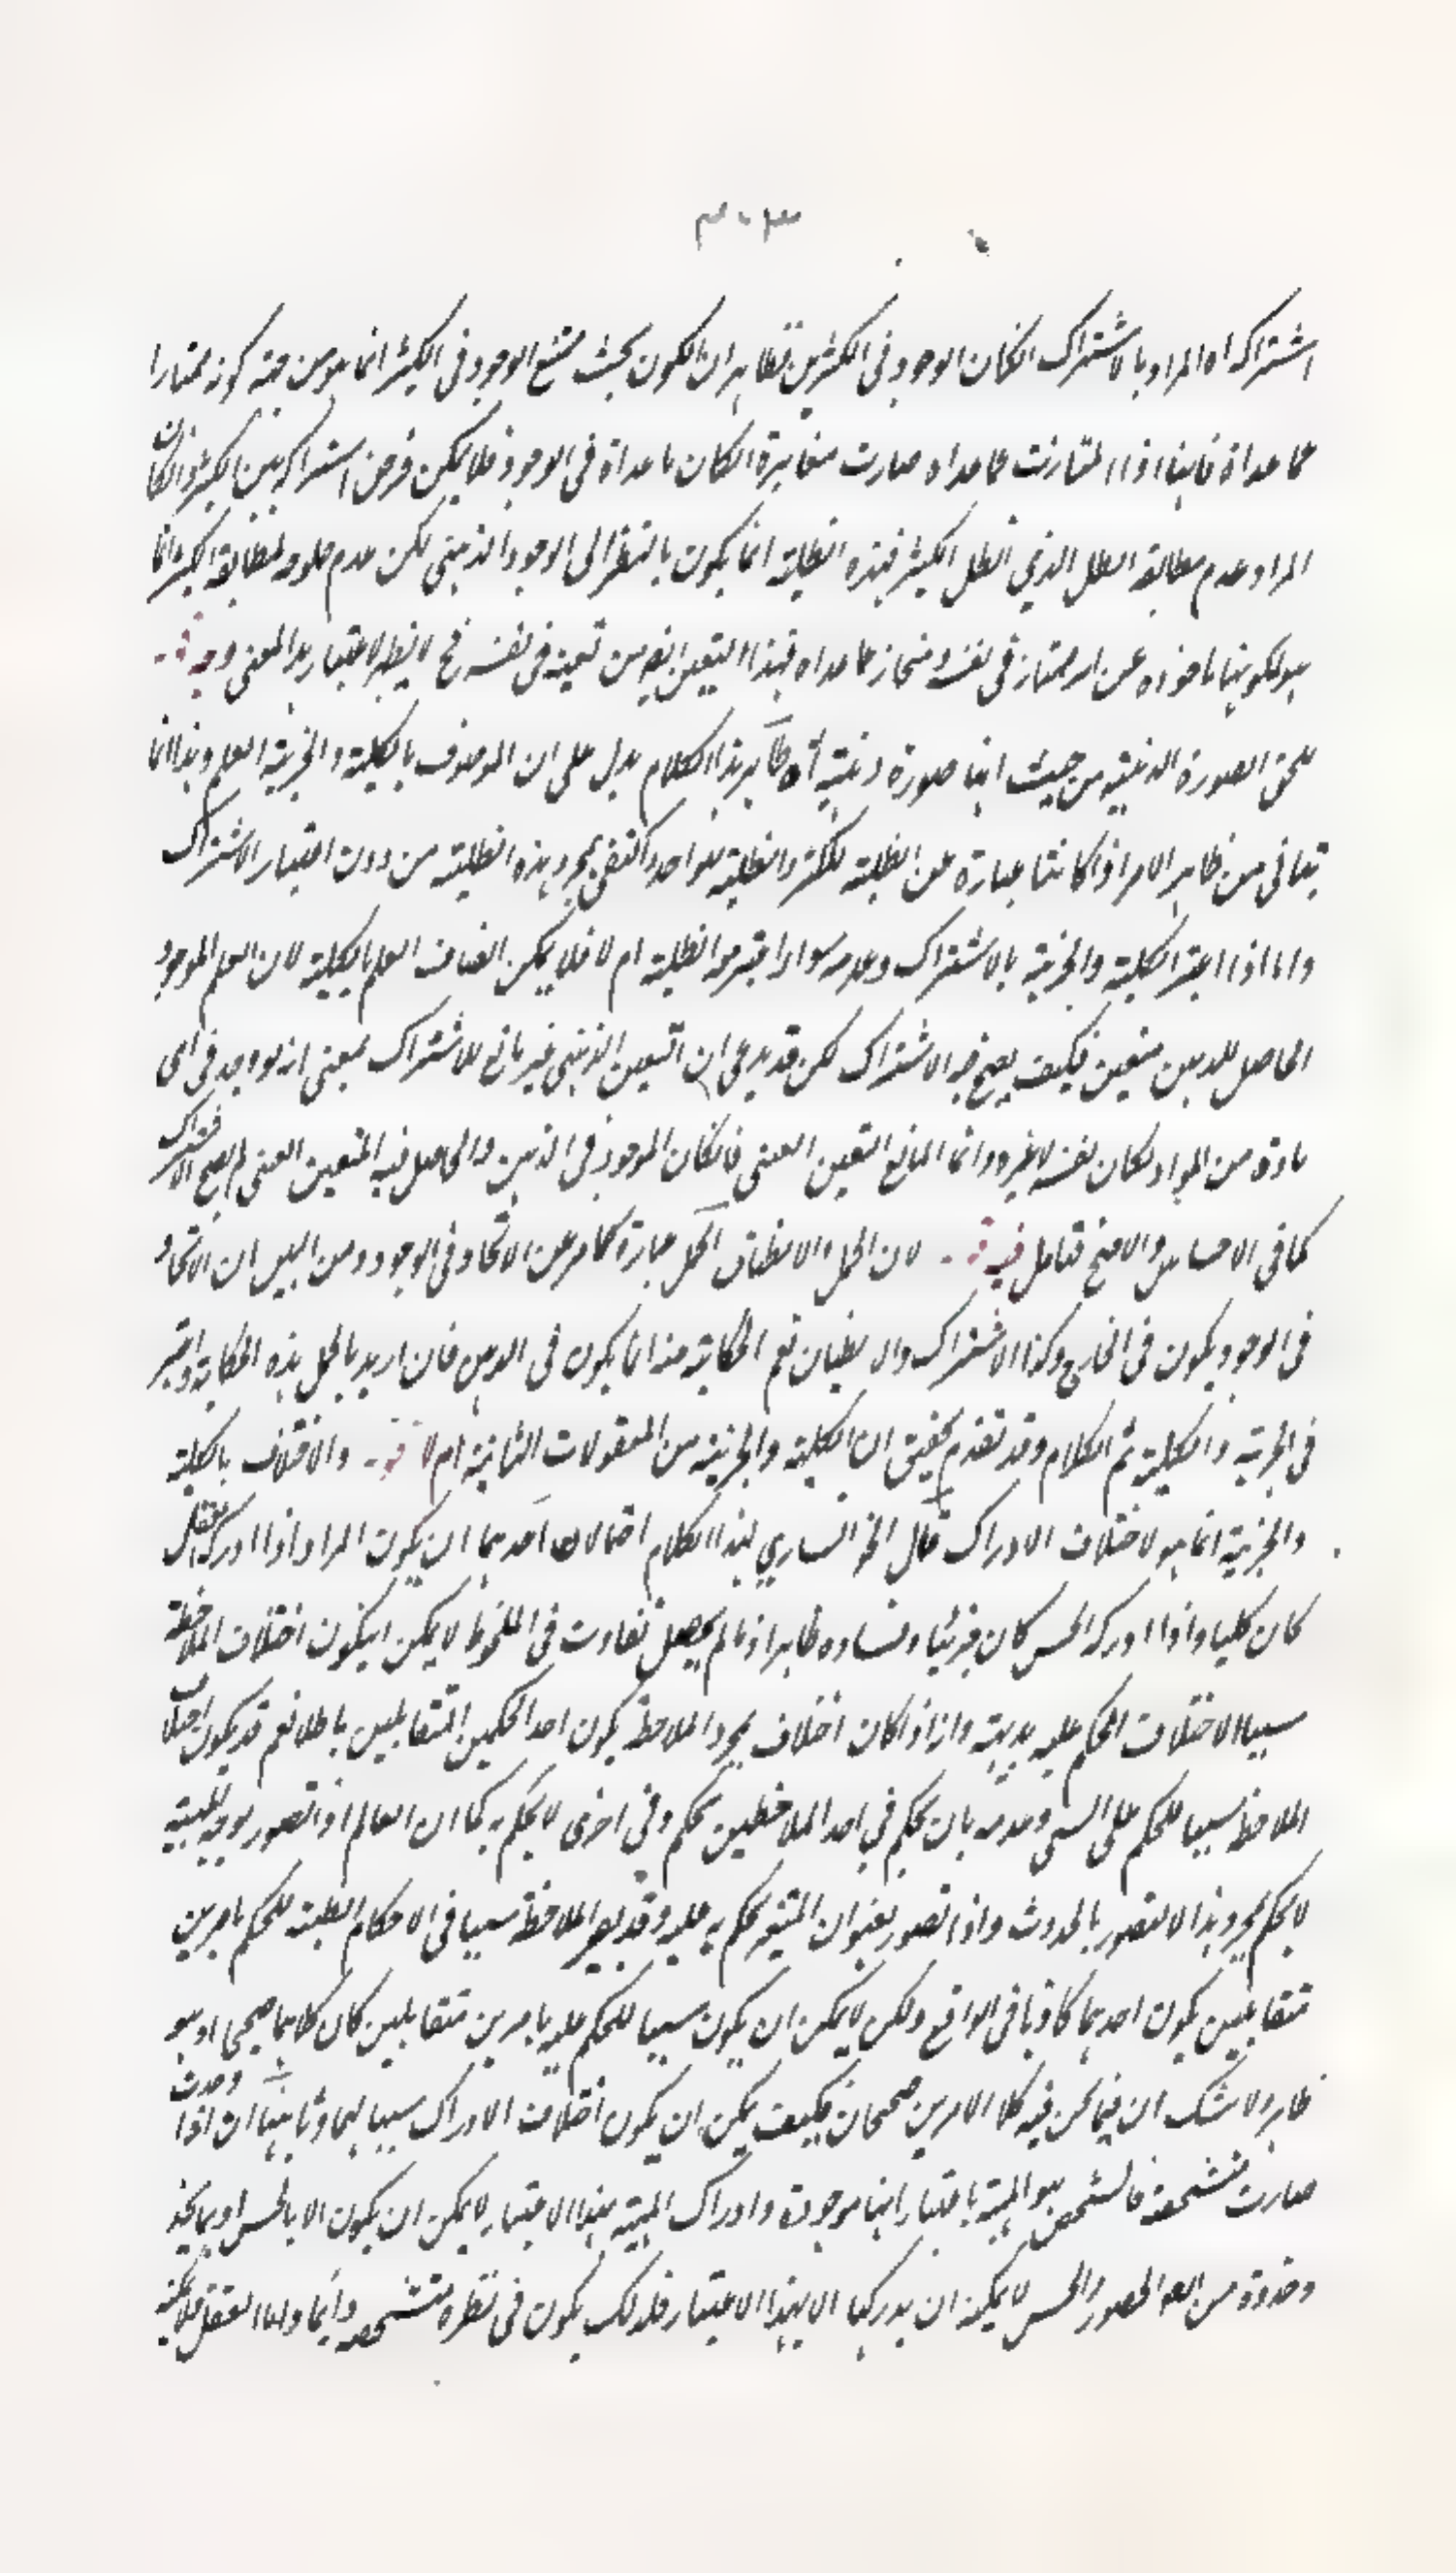 ٣٠٣
اشتراكه اه المراد بالاشتراك امكان الوجود في الكثيرين فظاهر ان الكون بحيث يمتنع الوجود في الكثير انما هو من جهة كونه ممتازا
عما عداه فانها اذا امتازت عما عداه صارت مغايرة لكان ما عداه في الوجود فلا يمكن فرض اشتراكه بين الكثير وان كان
المراد عدم مطابقة الظل الذي الظل الكثير فهذه الظلية انما يكون بالنظر الى الوجود الذهني لكن عدم صلوحه لمطابقة الكثير انما
هو لكونها ماخوذه عن امر ممتاز في نفسه ومنحاز عما عداه فهذا التعين ايضا من تعينه في نفسه فح لا يظهر لاعتبار هذا المعنى وجه قوله
يلحق الصورة الذهنية من حيث انها صورة ذهنية اه ظاهر هذا الكلام يدل على ان الموصوف بالكلية والجزئية العلم وهذا انما
يتاتى من ظاهر الامر اذا كانتا عبارة عن الظلية للكثير والظلية للواحد واكتفى بمجرد هذه الظلية من دون اعتبار الاشتراك
واما اذا اعتبر الكلية والجزئية بالاشتراك وعدمه سواء اعتبر معه الظلية ام لا فلا يمكن اتصاف العلم بالكلية لان العلم الموجود
الحاصل للذهن متعين فكيف يصح فيه الاشتراك لكن قد يدعى ان التعين الذهني غير مانع للاشتراك بمعنى انه لو وجد في اي
مادة من المواد لكان نفسه لا غيره وانما المانع التعين العيني فان كان الموجود في الذهن والحاصل فيه المتعين العيني لم يصح الاشتراك
كما في الاحساس والا صح فتامل فيه قوله لان الحمل والانطباق الحمل عبارة كما مر عن الاتحاد في الوجود ومن البين ان الاتحاد
في الوجود يكون في الخارج وكذا الاشتراك والانطباق نعم الحكاية منه انما يكون في الذهن فان اريد بالحمل هذه الحكاية واعتبر
في الجزئية والكلية ثم الكلام وقد تقدم تحقيق ان الكلية والجزئية من المعقولات الثانية ام لا قوله والاختلاف بالكلية
والجزئية انما هو لاختلاف الادراك قال الخوانساري لهذا الكلام احتمالات احدهما ان يكون المراد اذا ادركه العقل
كان كليا واذا ادركه الحس كان جزئيا وفساده ظاهر اذ ما لم يحصل تفاوت في الملحوظ لا يمكن ان يكون اختلاف الملاحظة
سببا لاختلاف الحكم عليه بديهة وانه اذا كان اختلاف بمجرد الملاحظة يكون احد الحكمين المتقابلين باطلا نعم قد يكون اختلاف
الملاحظة سببا للحكم على الشي وعدمه بان يحكم في احد الملاحظتين بحكم وفي اخرى لا يحكم به كما ان العالم اذا تصور بوجه
لا يحكم بمجرد هذا التصور بالحدوث واذا تصور بعنوان المتغير يحكم به عليه وقد يصير الملاحظة سببا في الاحكام الظنية للحكم بامرين
متقابلين يكون احدهما كاذبا في الواقع ولكن لا يمكن ان يكون سببا للحكم عليه بامرين متقابلين كان كلاهما صحيحا وهو
ظاهر ولا شك ان فيما نحن فيه كلا الامرين صحيحان فكيف يمكن ان يكون اختلاف الادراك سببا لهما وثانيها ان اذا وجدت
صارت متشخصة فالتشخص هو المهية باعتبار انها موجودة وادراك المهية بهذا الاعتبار لا يمكن ان يكون الا بالحس او بما يحذو
حذوه من العلم الحضوري والحس لا يمكنه ان يدركها الا بهذا الاعتبار فلذلك يكون في نظره متشخصه دائما واما العقل فلا يمكنه